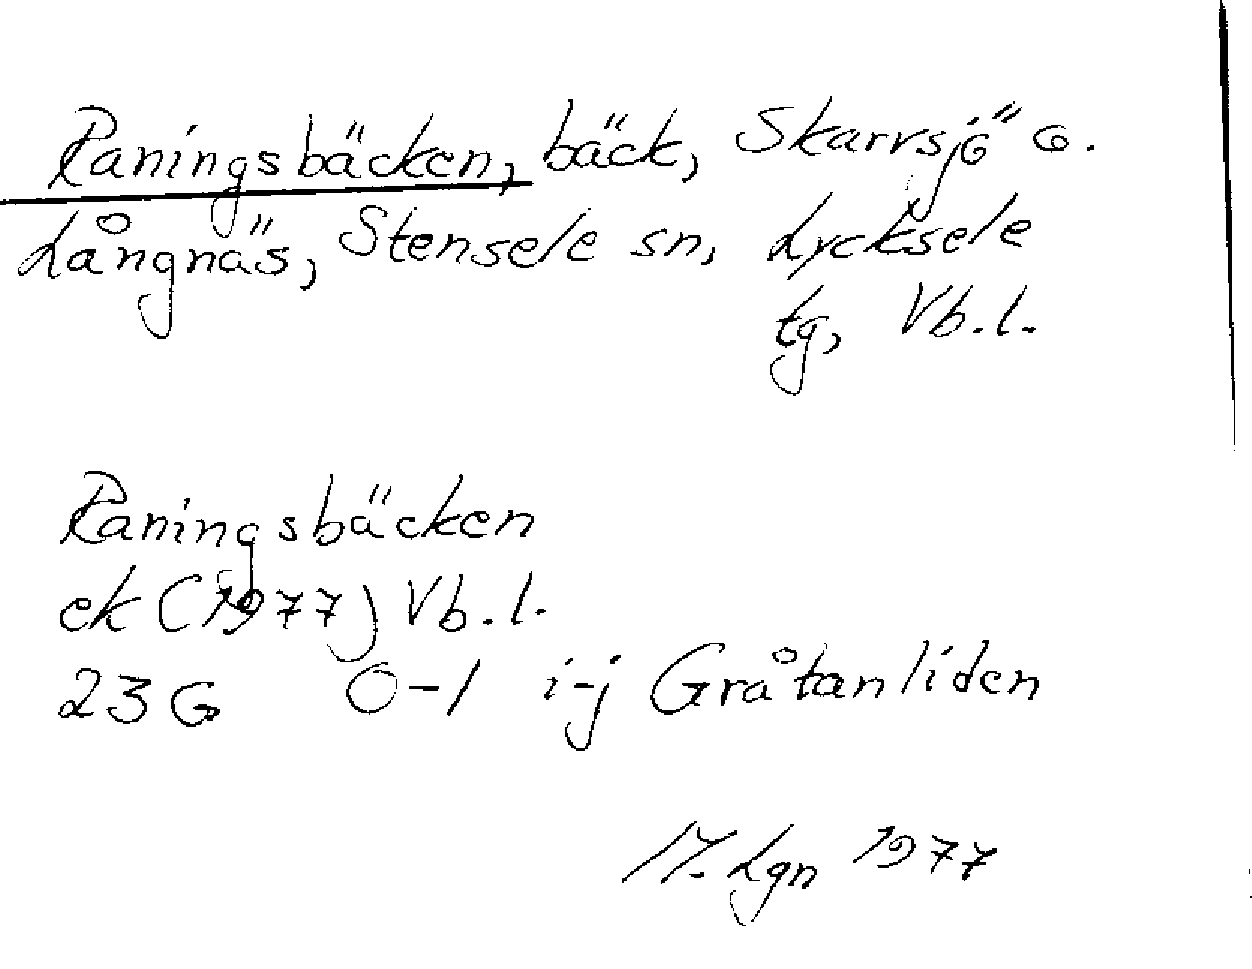 Raningsbäcken, bäck, Skarvsjö o.
Långnäs, Stensele sn, Lycksele
tg, Vb.l.
Raningsbäcken
ek (1977) Vb.l.
23 G 0-1 i-j Gråtanliden
Lgn 1977